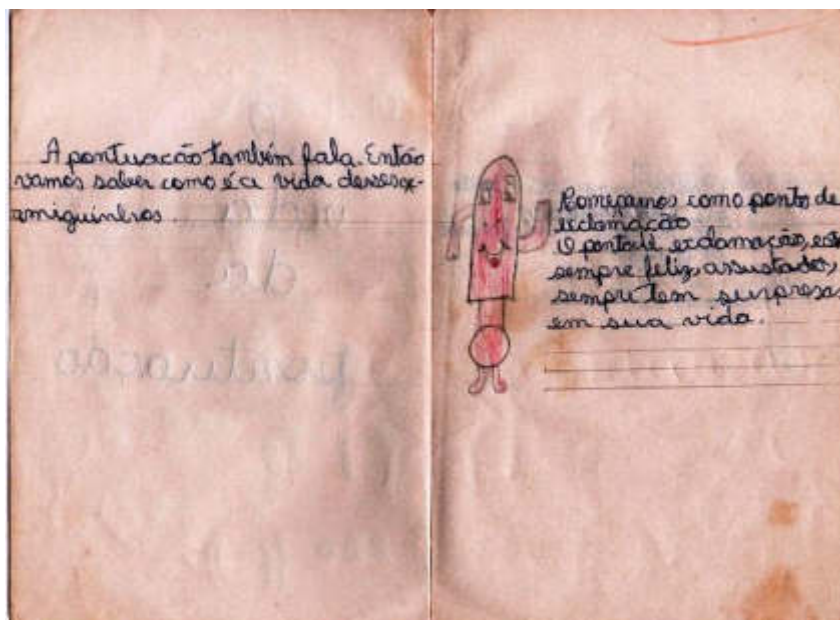 A pontuacão também fala. Então
vamos saber como é a vida desses
amiguinhos.
Começamos como ponto de
exclamação
O ponto de exclamação, está
sempre feliz, assustado,
sempre tem surpresa
em sua vida.
vida
da
pontuação